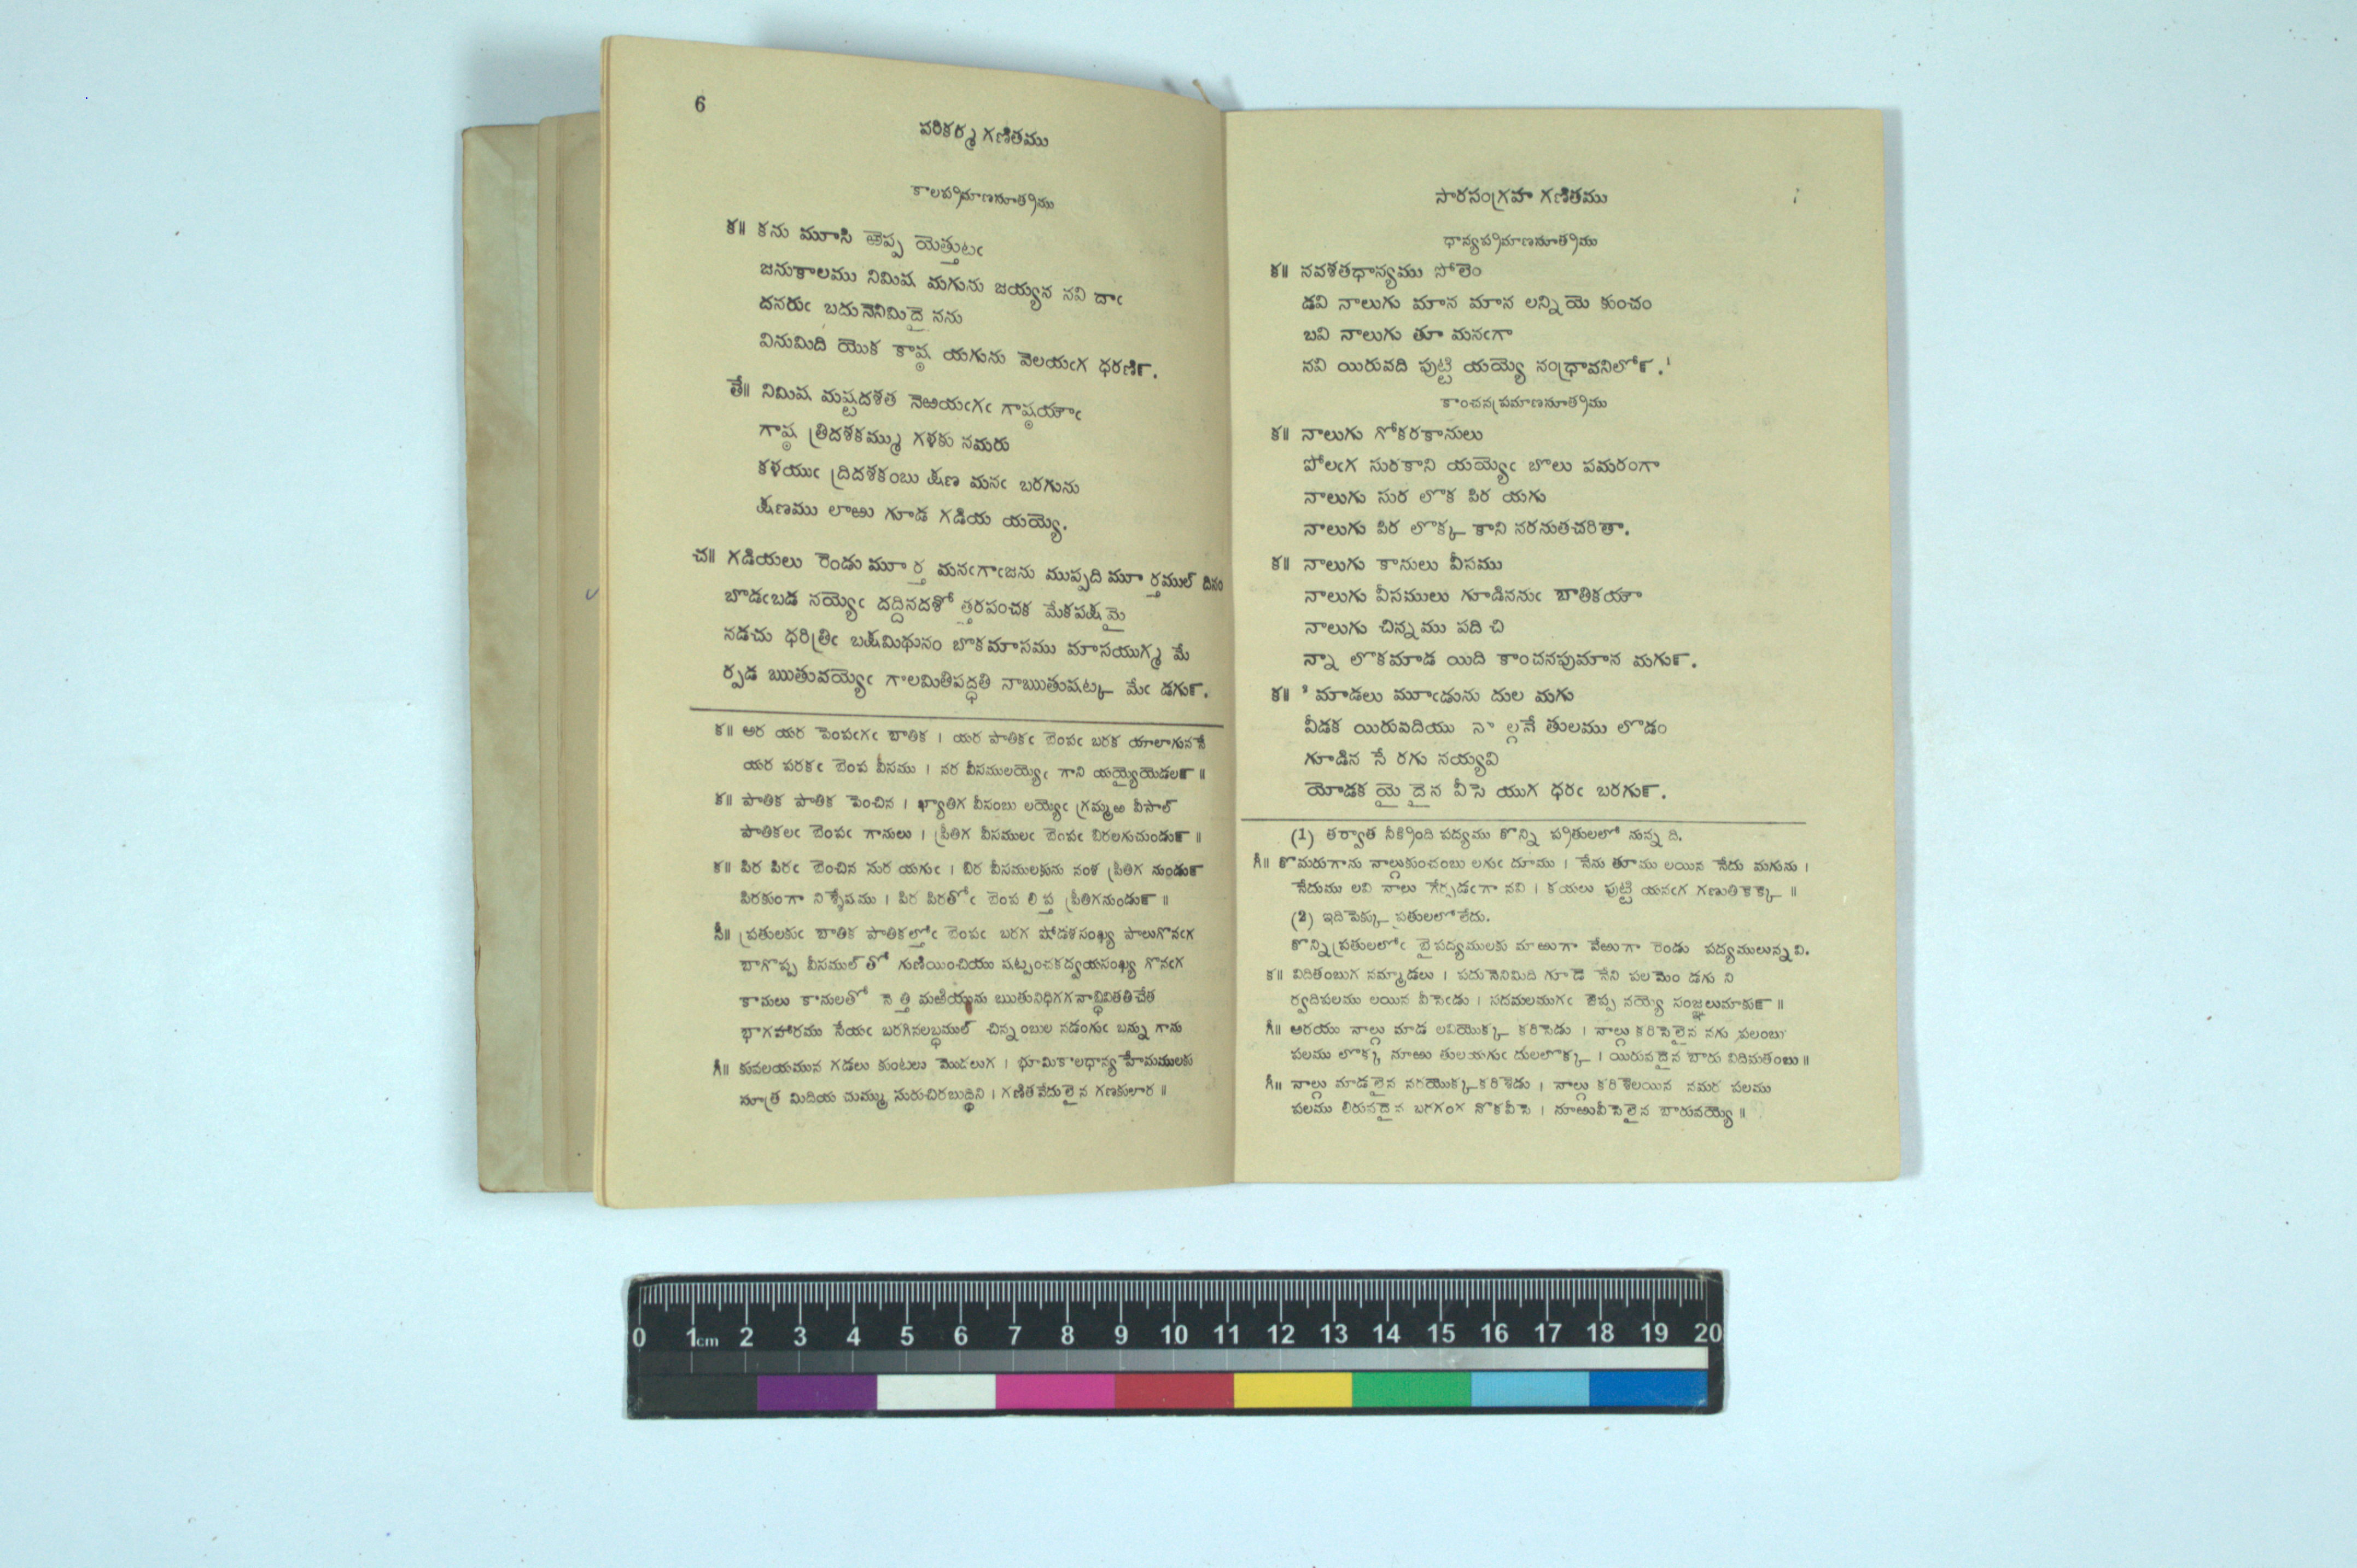 6
పరికర్మ గణితము
కాలపరిమాణసూత్రము
క॥ కను మూసి ఱెప్ప యెత్తుటఁ
జనుకాలము నిమిష మగును జయ్యన నవి దాఁ
దనరుఁ బదునెనిమిదై నను
వినుమిది యొక కాష్ఠ యగును వెలయఁగ ధరణిన్.
తే॥ నిమిష మష్టదశత నెఱయఁగఁ గాష్ఠయౌఁ
గాష్ఠ త్రిదశకమ్ము గళకు నమరు
కళయుఁ ద్రిదశకంబు క్షణ మనఁ బరగును
క్షణము లాఱు గూడ గడియ యయ్యె.
చ॥ గడియలు రెండు మూర్త మనఁగాఁజను ముప్పది మూర్తముల్ దినం
బొడఁబడ నయ్యెఁ దద్దినదశోత్తరపంచక మేకపక్షమై
నడచు ధరిత్రిఁ బక్షమిథునం బొకమాసము మాసయుగ్మ మే
ర్పడ ఋతువయ్యెఁ గాలమితిపద్ధతి నాఋతుషట్క మేఁ డగున్.
క॥ అర యర పెంపఁగఁ బాతిక । యర పాతికఁ బెంపఁ బరక యాలాగుననే
యర పరకఁ బెంప వీసము । నర వీసములయ్యెఁ గాని యయ్యైయెడలన్ ॥
క॥ పాతిక పాతిక పెంచిన । ఖ్యాతిగ వీసంబు లయ్యెఁ గ్రమ్మఱ వీసాల్
పాతికలఁ బెంపఁ గానులు । ప్రీతిగ వీసములఁ బెంపఁ బిరలగుచుండున్ ॥
క॥ పిర పిరఁ బెంచిన సుర యగుఁ । బిర వీసములకును నంశ ప్రీతిగ నుండున్
పిరకుంగా నిశ్శేషము । పిర పిరతోఁ బెంప లిప్త ప్రీతిగనుండున్ ॥
సీ॥ ప్రతులకుఁ బాతిక పాతికల్తోఁ బెంపఁ బరగ షోడశసంఖ్య పాలుగొనఁగ
బాగొప్ప వీసముల్ తో గుణియించియు షట్పంచకద్వయసంఖ్య గొనఁగ
కానులు కానులతో నెత్తి మఱియును ఋతునిధిగగనాబ్ధివితతిచేత
భాగహారము సేయఁ బరగినలబ్ధముల్ చిన్నంబుల నడంగుఁ బన్ను గాను
గీ॥ కువలయమున గడలు కుంటలు మొదలుగ । భూమికాలధాన్య హేమములకు
సూత్ర మిదియ చుమ్ము సురుచిరబుద్ధిని । గణితవేదులైన గణకులార ॥
సారసంగ్రహ గణితము
ధాన్యపరిమాణసూత్రము
క॥ నవశతధాన్యము సోలెం
డవి నాలుగు మాన మాన లన్నియె కుంచం
బవి నాలుగు తూ మనఁగా
నవి యిరువది పుట్టి యయ్యె నంధ్రావనిలోన్.¹
కాంచనప్రమాణసూత్రము
క॥ నాలుగు గోకరకానులు
పోలఁగ సురకాని యయ్యెఁ బొలు పమరంగా
నాలుగు సుర లొక పిర యగు
నాలుగు పిర లొక్క కాని నరనుతచరితా.
క॥ నాలుగు కానులు వీసము
నాలుగు వీసములు గూడిననుఁ బాతికయౌ
నాలుగు చిన్నము పది చి
న్నా లొకమాడ యిది కాంచనపుమాన మగున్.
క॥ ² మాడలు మూఁడును దుల మగు
వీడక యిరువదియు నాల్గనే తులము లొడం
గూడిన సే రగు నయ్యవి
యోడక యై దైన వీసె యుగ ధరఁ బరగున్.
(1) తర్వాత నీక్రింది పద్యము కొన్ని ప్రతులలో నున్న ది.
గీ॥ కొమరుగాను నాల్గుకుంచంబు లగుఁ దూము । నేను తూము లయిన నేదు మగును ।
నేదుము లవి నాలు గేర్పడఁగా నవి । కయలు పుట్టి యనఁగ గణుతికెక్కె ॥
(2) ఇది పెక్కు ప్రతులలో లేదు.
కొన్నిప్రతులలోఁ బైపద్యములకు మాఱుగా వేఱుగా రెండు పద్యములున్నవి.
క॥ విదితంబుగ నమ్మాడలు । పదునెనిమిది గూడె నేని పలమెం డగు ని
ర్వదిపలము లయిన వీసెఁడు । సదమలముగఁ జెప్ప నయ్యె సంజ్ఞలుమాకున్ ॥
గీ॥ అరయు నాల్గు మాడ లవియొక్క కరిసెడు । నాల్గు కరిసెలైన నగు పలంబు
పలము లొక్క నూఱు తులయగుఁ దులలొక్క । యిరువదైన బారు విదిమతంబు ॥
గీ॥ నాల్గు మాడలైన నరయొక్కకరిశెడు । నాల్గు కరిశెలయిన నమర పలము
పలము లిరువదైన బరగంగ నొకవీసె । నూఱువీసెలైన బారువయ్యె ॥
0 1cm 2 3 4 5 6 7 8 9 10 11 12 13 14 15 16 17 18 19 20